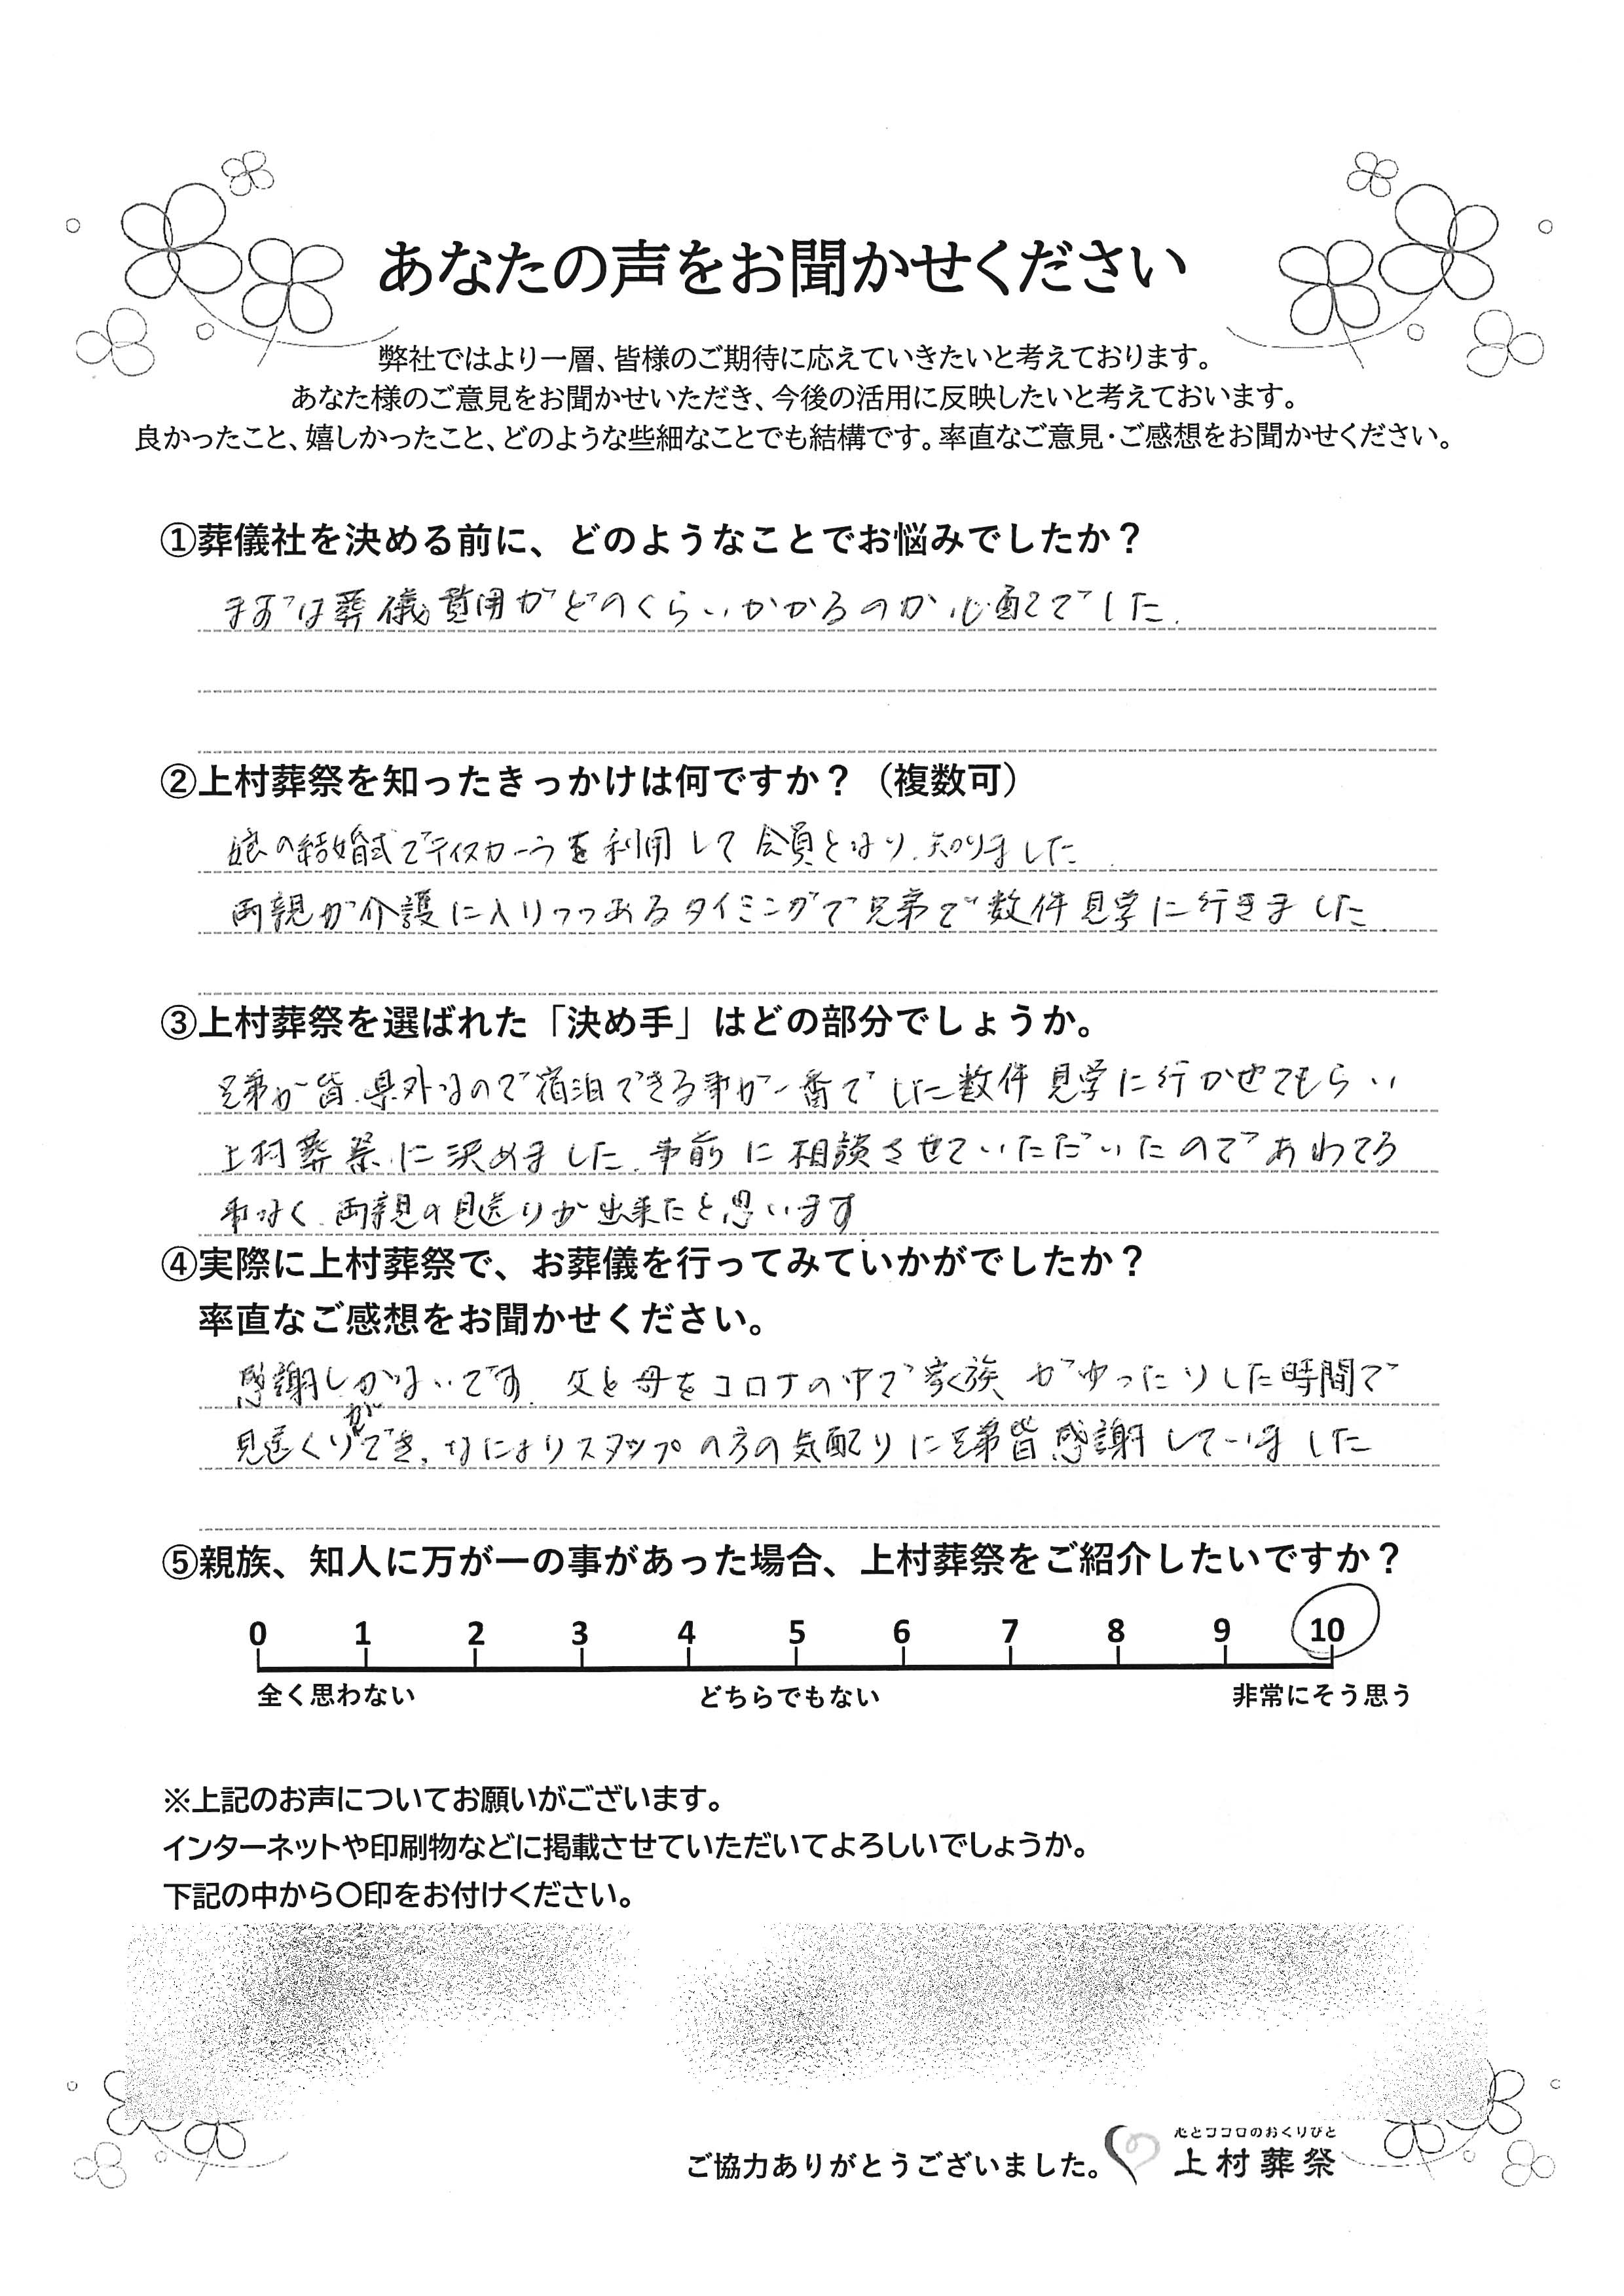 あなたの声をお聞かせください
弊社ではより一層、皆様のご期待に応えていきたいと考えております。
あなた様のご意見をお聞かせいただき、今後の活用に反映したいと考えておいます。
良かったこと、嬉しかったこと、どのような些細なことでも結構です。率直なご意見・ご感想をお聞かせください。
①葬儀社を決める前に、どのようなことでお悩みでしたか？
まずは葬儀費用がどのくらいかかるのか心配でした.
②上村葬祭を知ったきっかけは何ですか？（複数可）
娘の結婚式でティスカーラを利用して会員となり、知りました
両親が介護に入りつつあるタイミングで兄弟で数件見学に行きました.
③上村葬祭を選ばれた「決め手」はどの部分でしょうか。
兄弟が皆、県外なので宿泊できる事が一番でした数件見学に行かせてもらい
上村葬祭に決めました、事前に相談させていただいたのであわてる
事なく、両親の見送りが出来たと思います.
④実際に上村葬祭で、お葬儀を行ってみていかがでしたか？
率直なご感想をお聞かせください。
感謝しかないです. 父と母をコロナの中で家族がゆったりした時間で
見送くりができ、なによりスタッフの方の気配りに兄弟皆感謝していました
⑤親族、知人に万が一の事があった場合、上村葬祭をご紹介したいですか？
0 1 2 3 4 5 6 7 8 9 10
全く思わない どちらでもない 非常にそう思う
※上記のお声についてお願いがございます。
インターネットや印刷物などに掲載させていただいてよろしいでしょうか。
下記の中から〇印をお付けください。
心とココロのおくりびと
ご協力ありがとうございました。 上村葬祭